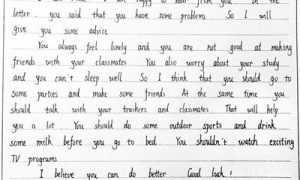 am happy to hear from you. In the
letter, you said that you have some problems. So I will
give you some advice.
You always feel lonely and you are not good at making
friends with your classmates. You also worry about your study
and you can't sleep well. So I think that you should go to
some parties and make some friends. At the same time you
should talk with your teachers and classmates. That will help
you a lot. You should do some outdoor sports and drink
some milk before you go to bed. You shouldn't watch exciting
TV programs.
I believe you can do better. Good luck!